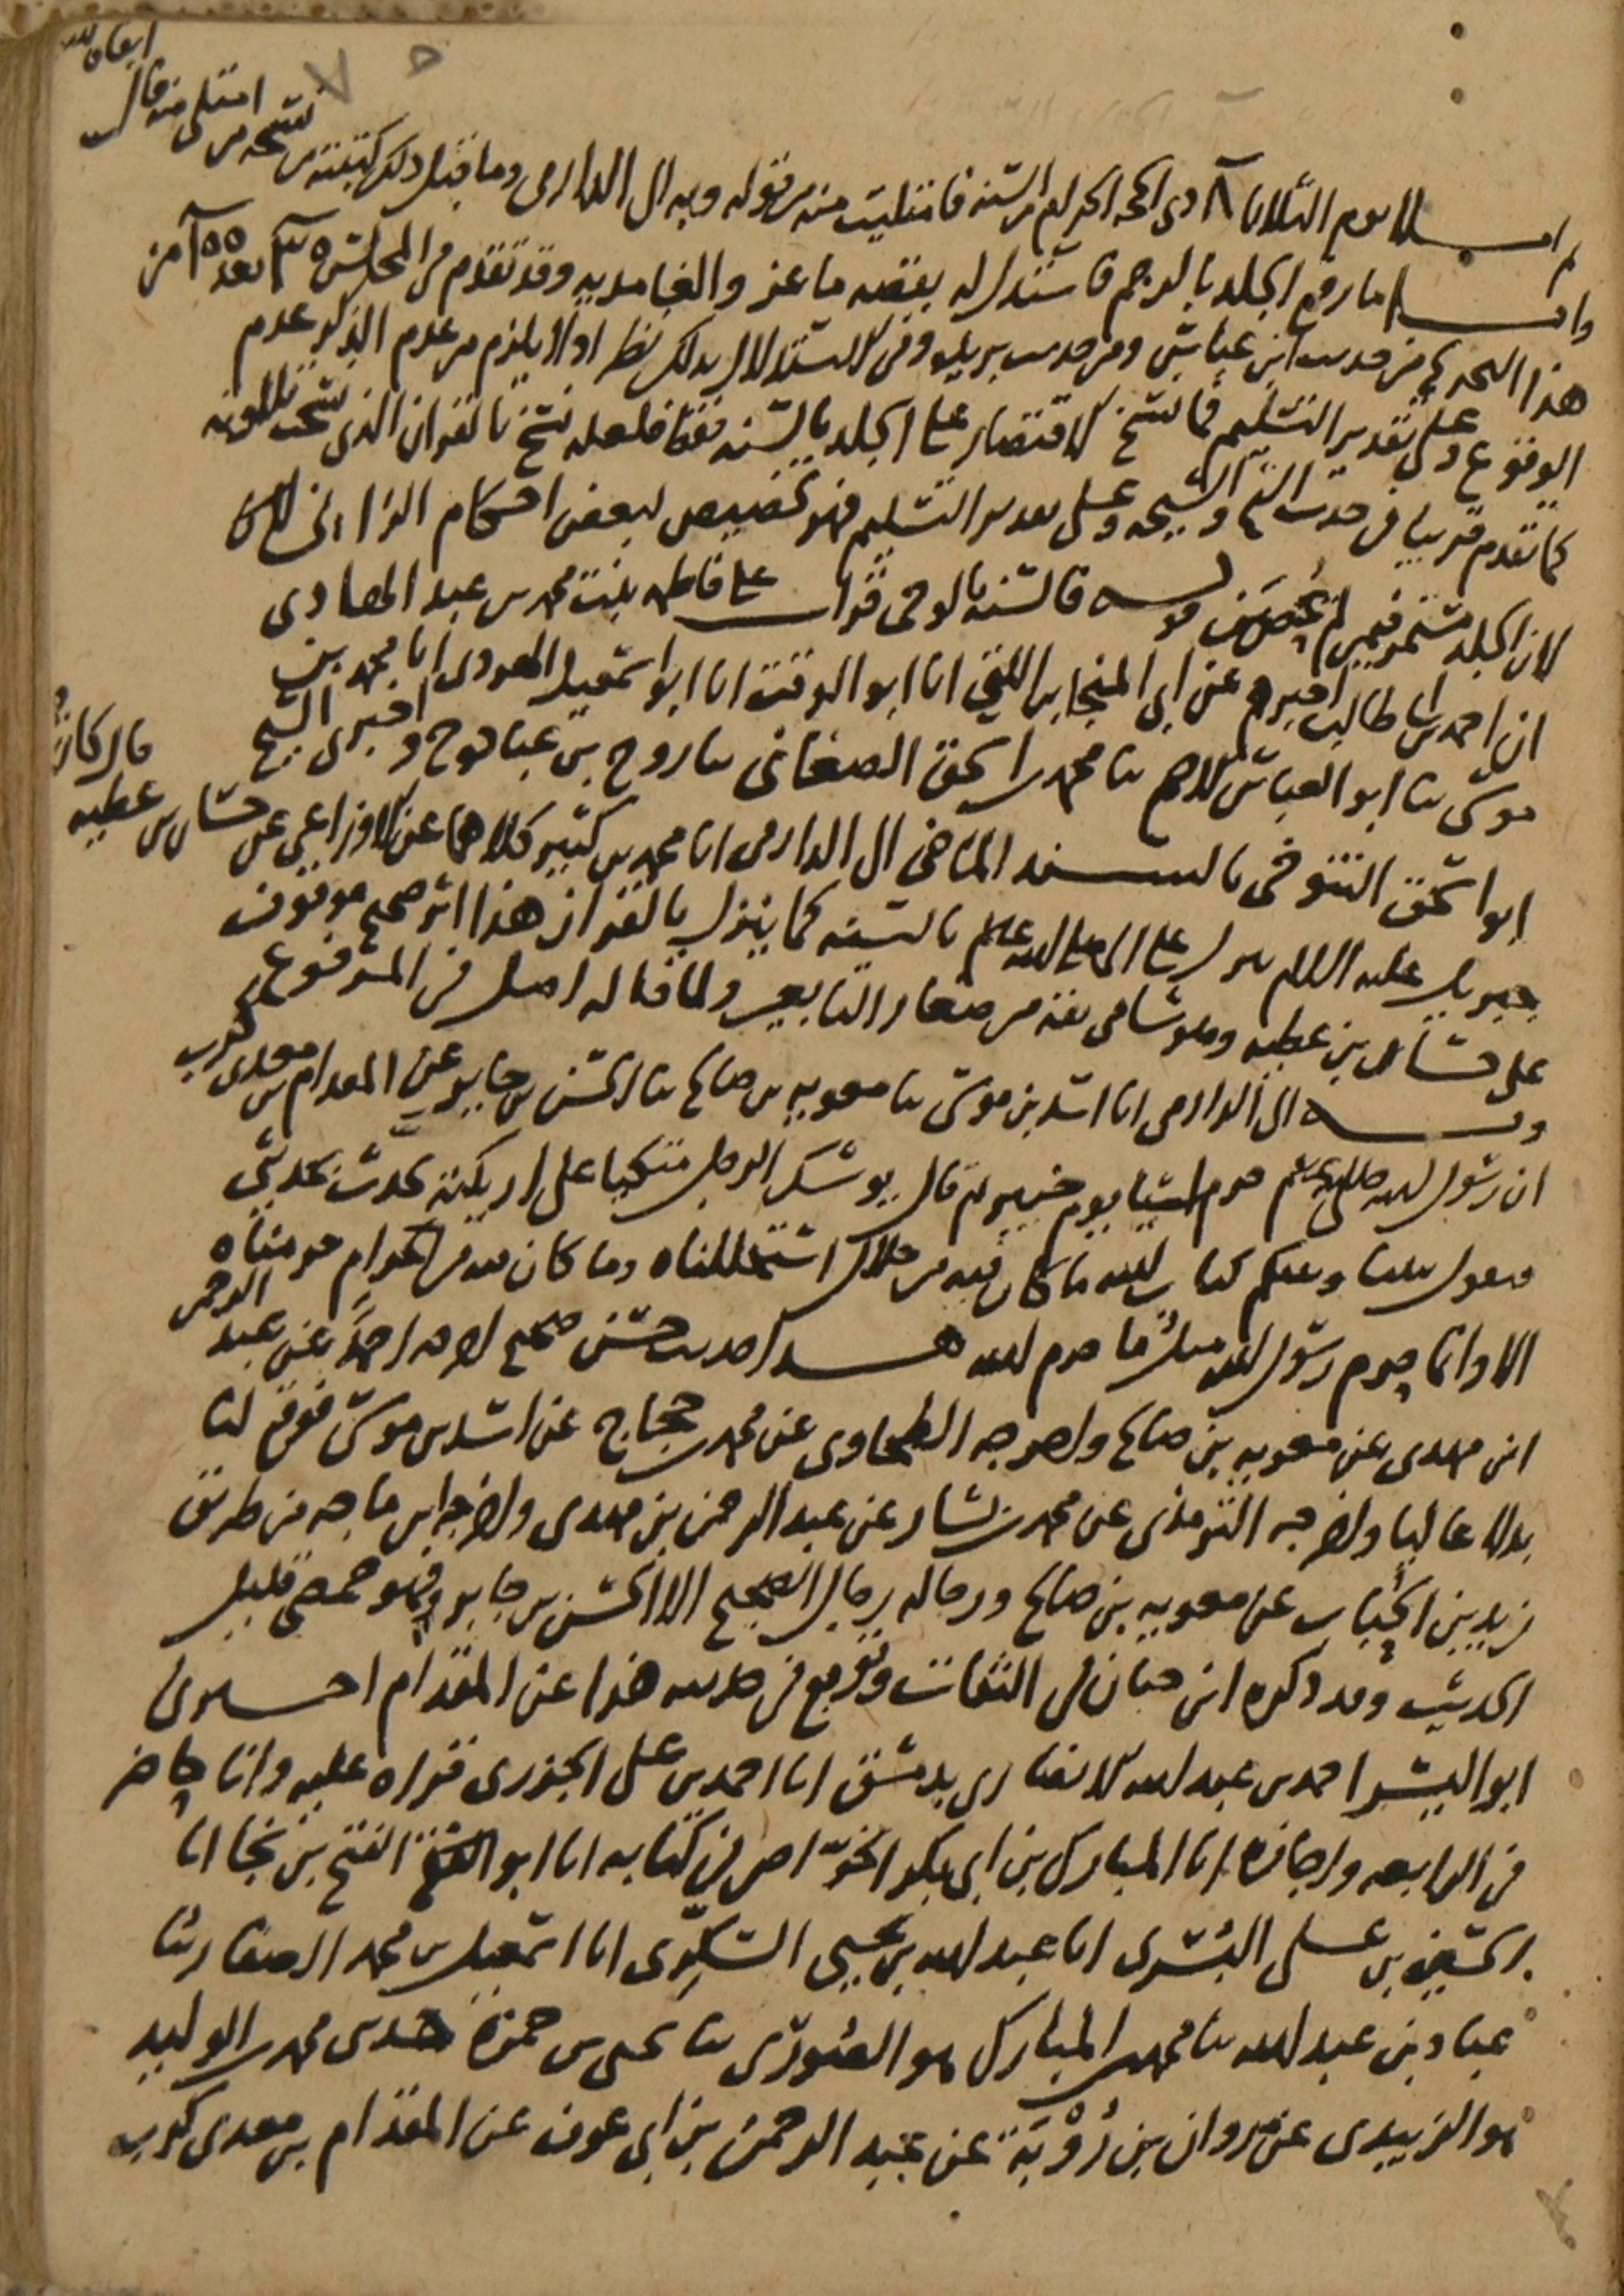 ثم املا يوم الثلاثا ٨ ذي الحجة الحرام من السنة فامتليت منه من قوله وبه الى الدارمي وما قبل ذلك كتبته من نسخة من امتلى منه قال
واما رفع الجلد بالرجم فاستدل له بقصة ماعز والغامدية وقد تقدم في المجلس
هذا التخريج من حديث ابن عباس ومن حديث بريدة وفي الاستدلال بذلك نظر اولا لا يلزم من عدم الذكر عدم
الوقوع وعلى تقدير التسليم فما نسخ الاقتصار على الجلد بالسنة فقط فلعله نسخ بالقران الذي نسخت تلاوته
كما تقدم قريبا في حديث الشيخ والشيخة وعلى تقدير التسليم فهو تخصيص لبعض احكام الزاني
لان الجلد مستمر فيمن لم يحصن قوله قالسنة بالوحي قرات على فاطمة بنت محمد بن عبد الهادي
ان احمد بن ابي طالب اخبرهم عن ابي المنجا بن اللتي انا ابو الوقت انا ابو اسمعيل الهروي انا محمد بن
موسى ثنا ابو العباس الاصم ثنا محمد بن اسحق الصغاني ثنا روح بن عبادة ح واخبرني الشيخ
ابو اسحق التنوخي بالسند الماضي الى الدارمي انا محمد بن كثير كلاهما عن الاوزاعي عن حسان بن عطية قال كان
جبريل عليه السلام ينزل على النبي صلى الله عليه وسلم بالسنة كما ينزل بالقران هذا اثر صحيح موقوف
على حسان بن عطية وهو شامي ثقة من صغار التابعين ولما قاله اصل في المرفوع
وبه الى الدارمي انا اسد بن موسى ثنا معوية بن صالح ثنا الحسن بن جابر عن المقدام بن معدي كرب
ان رسول الله صلى الله عليه وسلم حرم اشيا يوم خيبر ثم قال يوشك الرجل متكيا على اريكته يحدث بحديثي
فيقول بيننا وبينكم كتاب الله ما كان فيه من حلال استحللناه وما كان فيه من الحرام حرمناه
الا وانما حرم رسول الله مثل ما حرم الله هذا حديث حسن صحيح اخرجه احمد عن عبد الرحمن
ابن مهدي عن معوية بن صالح واخرجه الطحاوي عن محمد بن حجاج عن اسد بن موسى فوقع لنا
بدلا عاليا واخرجه الترمذي عن محمد بن بشار عن عبد الرحمن بن مهدي واخرجه ابن ماجه من طريق
زيد بن الحباب عن معوية بن صالح ورجاله رجال الصحيح الا الحسن بن جابر وهو حمصي قليل
الحديث وقد ذكره ابن حبان في الثقات وتوبع في حديثه هذا عن المقدام اخبرني
ابو اليسر احمد بن عبد الله الانصاري بدمشق انا احمد بن على الجزري قراه عليه وانا حاضر
في الرابعة واجازة انا المبارك بن ابي بكر الخواص في كتابه انا ابو الفتح بن نجا انا
الحسين بن على البسري انا عبد الله بن يحيى السكري انا اسمعيل بن محمد الصفار ثنا
عباد بن عبد الله ثنا محمد بن المبارك هو الصوري ثنا يحيى بن حمزة حدثني محمد بن الوليد
هو الزبيدي عن مروان بن رؤبة عن عبد الرحمن بن ابي عوف عن المقدام بن معدي كرب